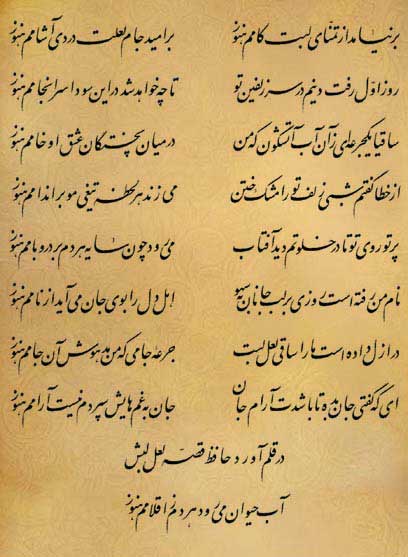 بر نیامد از تمنای لبت کامم هنوز بر امید جام لعلت دردی آشامم هنوز
روز اول رفت دینم در سر زلفین تو تا چه خواهد شد در این سودا سرانجامم هنوز
ساقیا یکجرعه ای زآن آب آتشگون که من در میان پختگان عشق او خامم هنوز
از خطا گفتم شبی زلف تو را مشک ختن می زند هر لحظه تیغی مو بر اندامم هنوز
پرتو روی تو تا در خلوتم دید آفتاب می رود چون سایه هر دم بر در و بامم هنوز
نام من رفته است روزی بر لب جانان به سهو اهل دل را بوی جان می آید از نامم هنوز
در ازل داده است ما را ساقی لعل لبت جرعه جامی که من مدهوش آن جامم هنوز
ای که گفتی جان بده تا باشدت آرام جان جان به غم هایش سپردم نیست آرامم هنوز
در قلم آورد حافظ قصه لعل لبش
آب حیوان می رود هر دم ز اقلامم هنوز